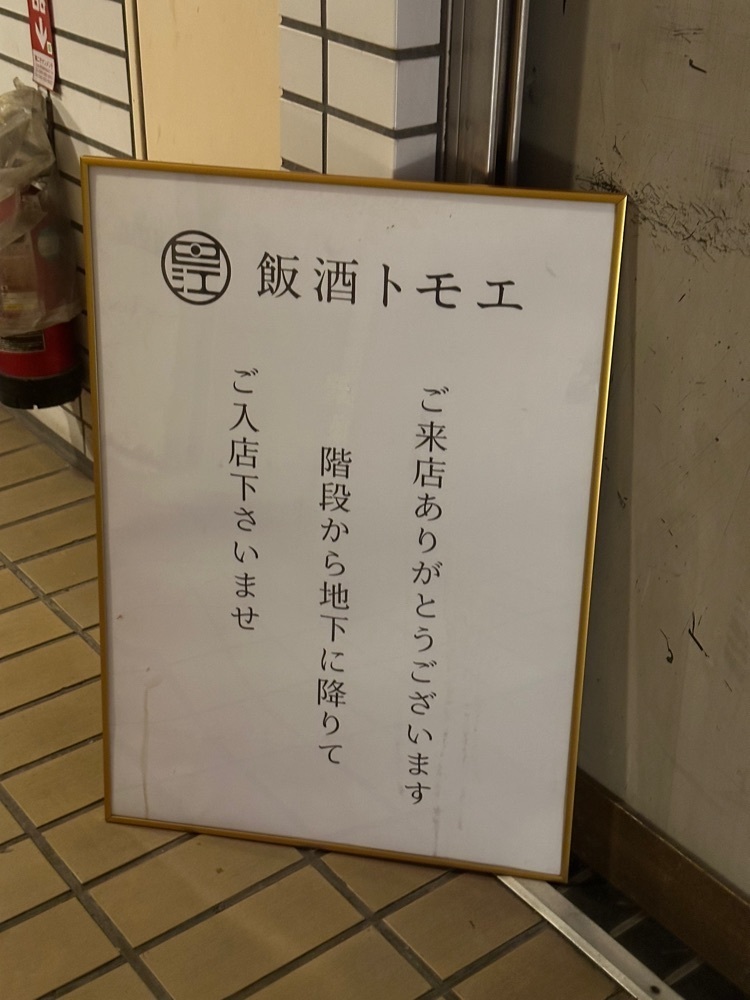 飯酒トモエ
ご来店ありがとうございます
階段から地下に降りて
ご入店下さいませ